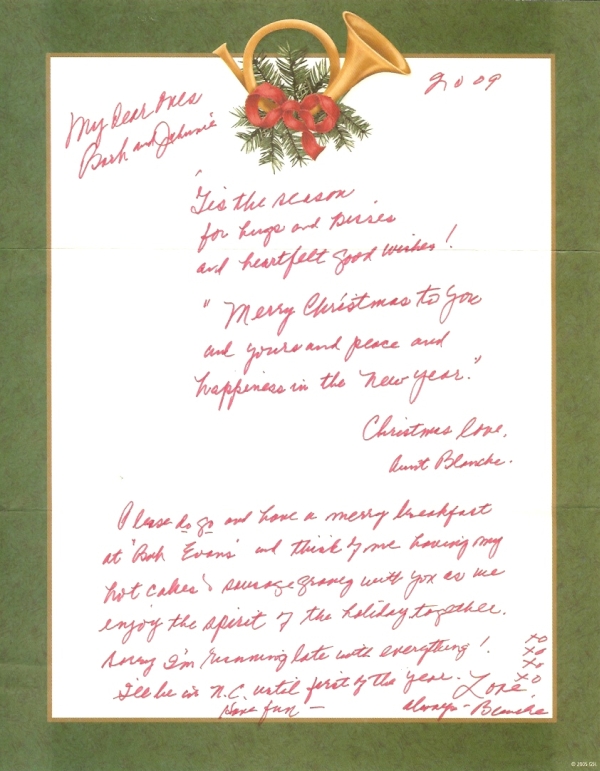 2009
My Dear Ones
Barb and Johnnie
'Tis the season
for hugs and kisses
and heartfelt good wishes!
"Merry Christmas to you
and yours and peace and
happiness in the New Year."
Christmas love,
Aunt Blanche.
Please do go and have a merry breakfast
at 'Bob Evans' and think of me having my
hot cakes & sausage gravy with you as we
enjoy the spirit of the holiday together.
Sorry I'm running late with everything!
I'll be in N.C. until first of the year.
Have fun —
Love
always - Blanche
XO
XO
XO
XO
© 2005 GSI